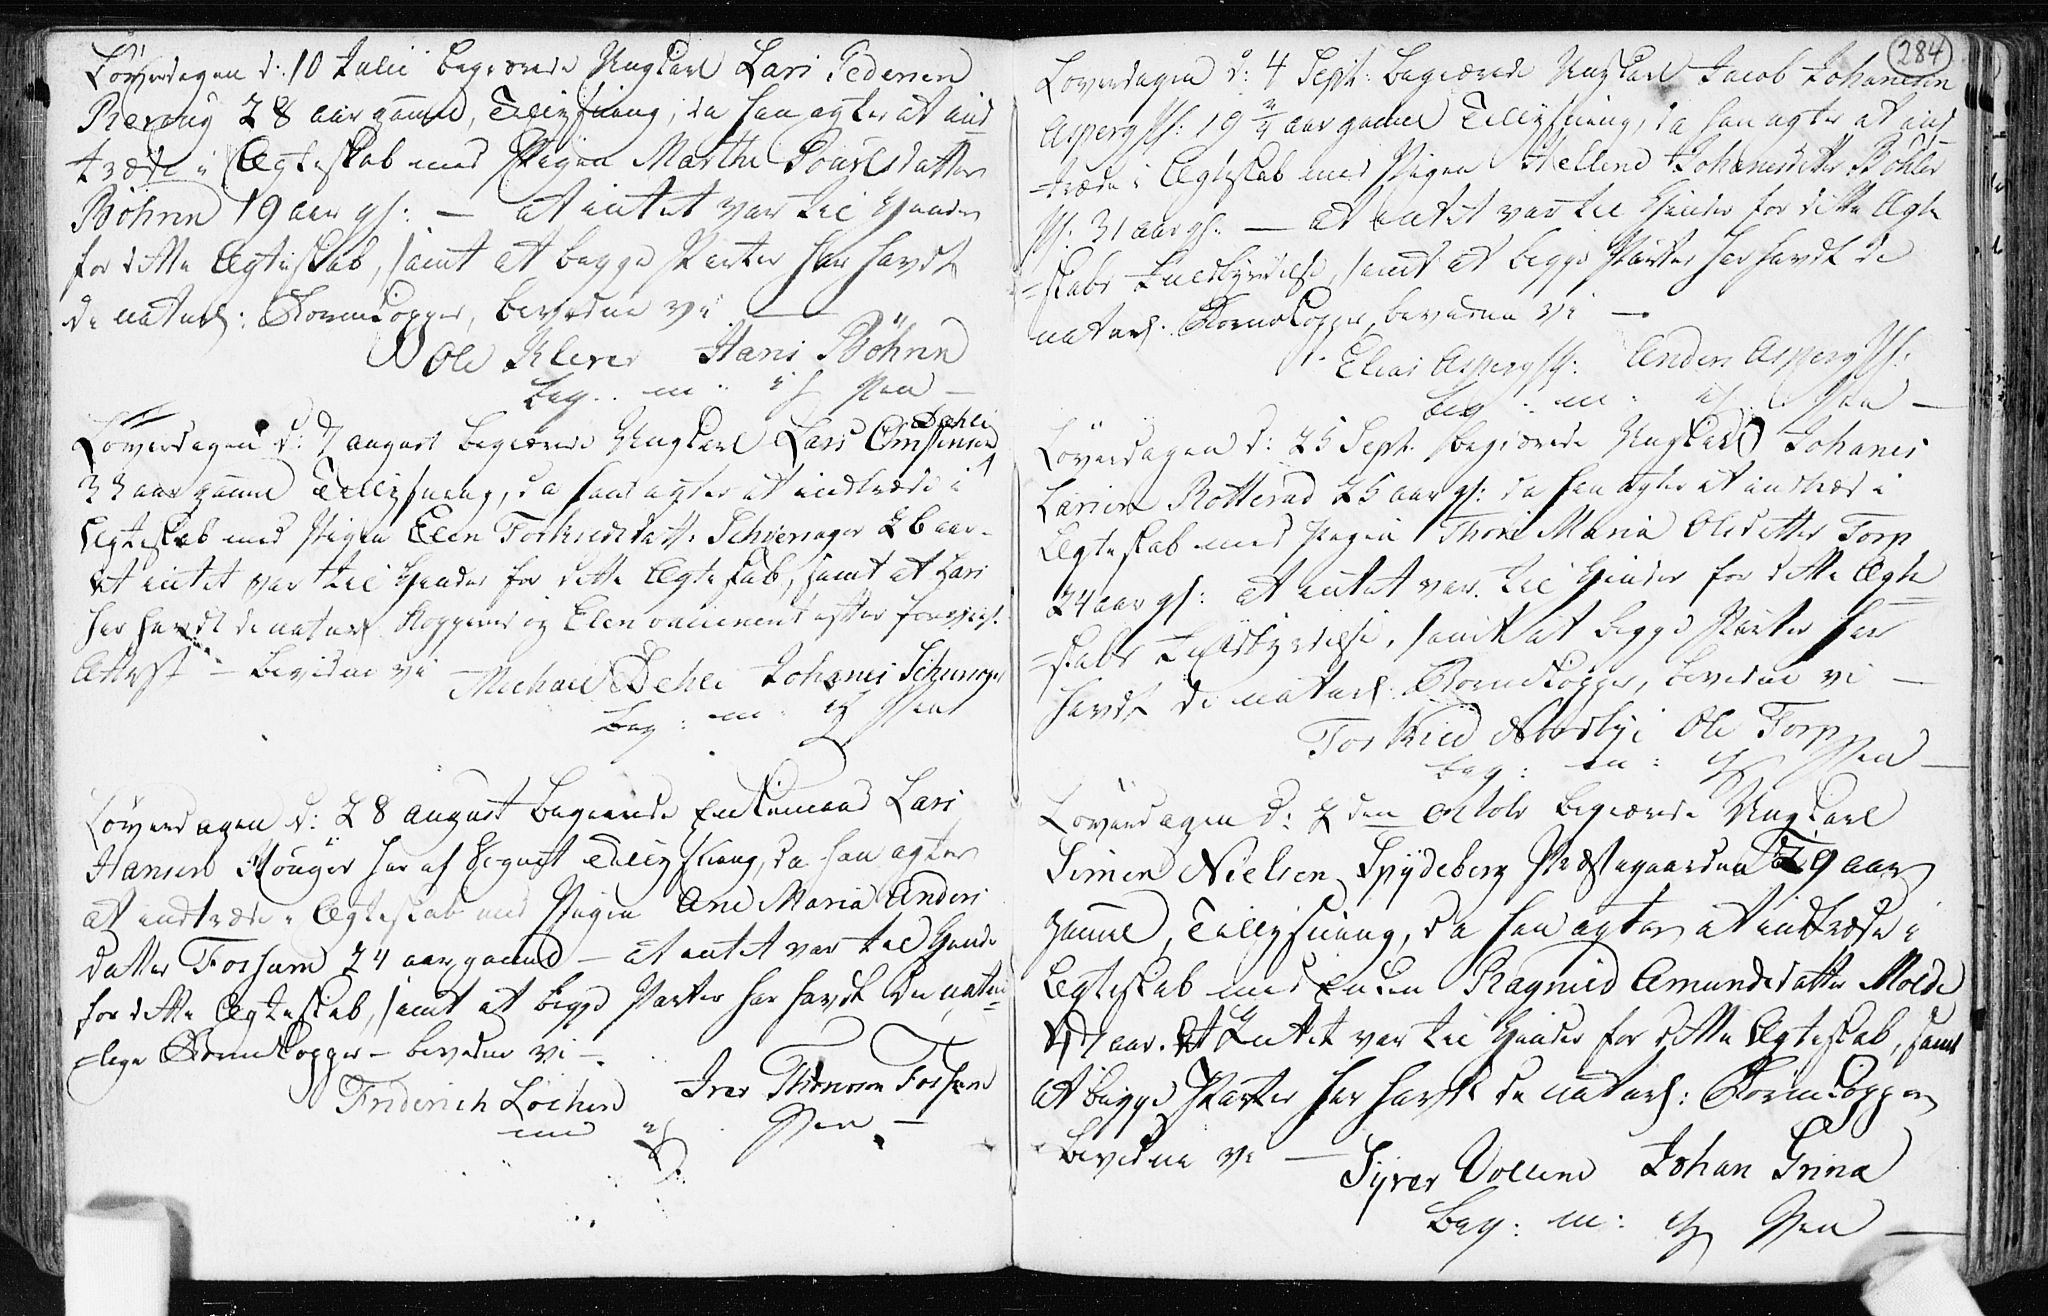 Löverdagen d: 10 Julii begierede Ungkarl Lars Pedersen
28 aar gamel, Tillysning, da han agter at ind
træde i Ægteskab med Pigen Marthe Poulsdatter
Böhren 19 aar gl: — at intet var til Hinder
for dette Ægteskab, samt at begge Parter har havdt
de naturl: Bornekopper, bevidne vi —
Ole Klever Hans Böhren
beg: m: i P Pen —
Löverdagen d: 7 august begierede Ungkarl Lars Dahle
33 aar gamel Tillysning, da han agter at indtræde i
Ægteskab med Pigen Elen 26 aar -
at intet var til Hinder for dette Ægteskab, samt at Lars
har havdt de naturl Kopperne og Elen vaccineret efter foreviist
Attest — bevidne vi Michael Dehle Johanes
beg: m: P Pen
Löverdagen d: 28 august begierede Enkemand Lars
Hansen har af Tillysning, da han agter
at indtræde i Ægteskab med Pigen Ane Maria Anders
datter Fossum 24 aar gamel — at intet var til Hinder
for dette Ægteskab, samt at begge Parter har havdt de natur=
=lige Bornekopper — bevidne vi —
Friderich Löchen Iver Thoreson Fossum
med P Pen —
284
Loverdagen d: 4 Sept: begierede Ungkarl Jacob Johanesen
Asperg 19 aar gamel Tillysning, da han agter at ind
træde i Ægteskab med Pigen Hellene Johanesdatter Böhler
31 aar gl: — at intet var til Hinder for dette Ægte
=skabs Fuldbyrdelse, samt at begge Parter har havdt de
naturl: Bornekopper bevidne vi —
Elias Asperg Anders Asperg
beg: m: P Pen —
Löverdagen d: 25 Sept. begierede Ungkarl Johanes
Larsen Rotterud 25 aar gl: da han agter at indtræde i
Ægteskab med Pigen Thore Maria Olsdatter Torp
24 aar gl: at intet var til Hinder for dette Ægte
=skabs Fuldbyrdelse, samt at begge Parter har
havdt de naturl: Bornekopper, bevidne vi —
Torkild Ole Torp
beg: m: P Pen —
Löverdagen d: 2 den October begierede Ungkarl
Simen Nielsen Spydeberg Præstegaarden 29 aar
gamel, Tillysning, da han agter at indtræde i
Ægteskab med Enken Ragnild Amundsdatter Molde
aar. At Intet var til Hinder for dette Ægteskab, samt
at begge Parter har havdt de naturl: Bornekopper
bevidne vi — Syver Vollene Johan Grina
beg: m: P Pen —